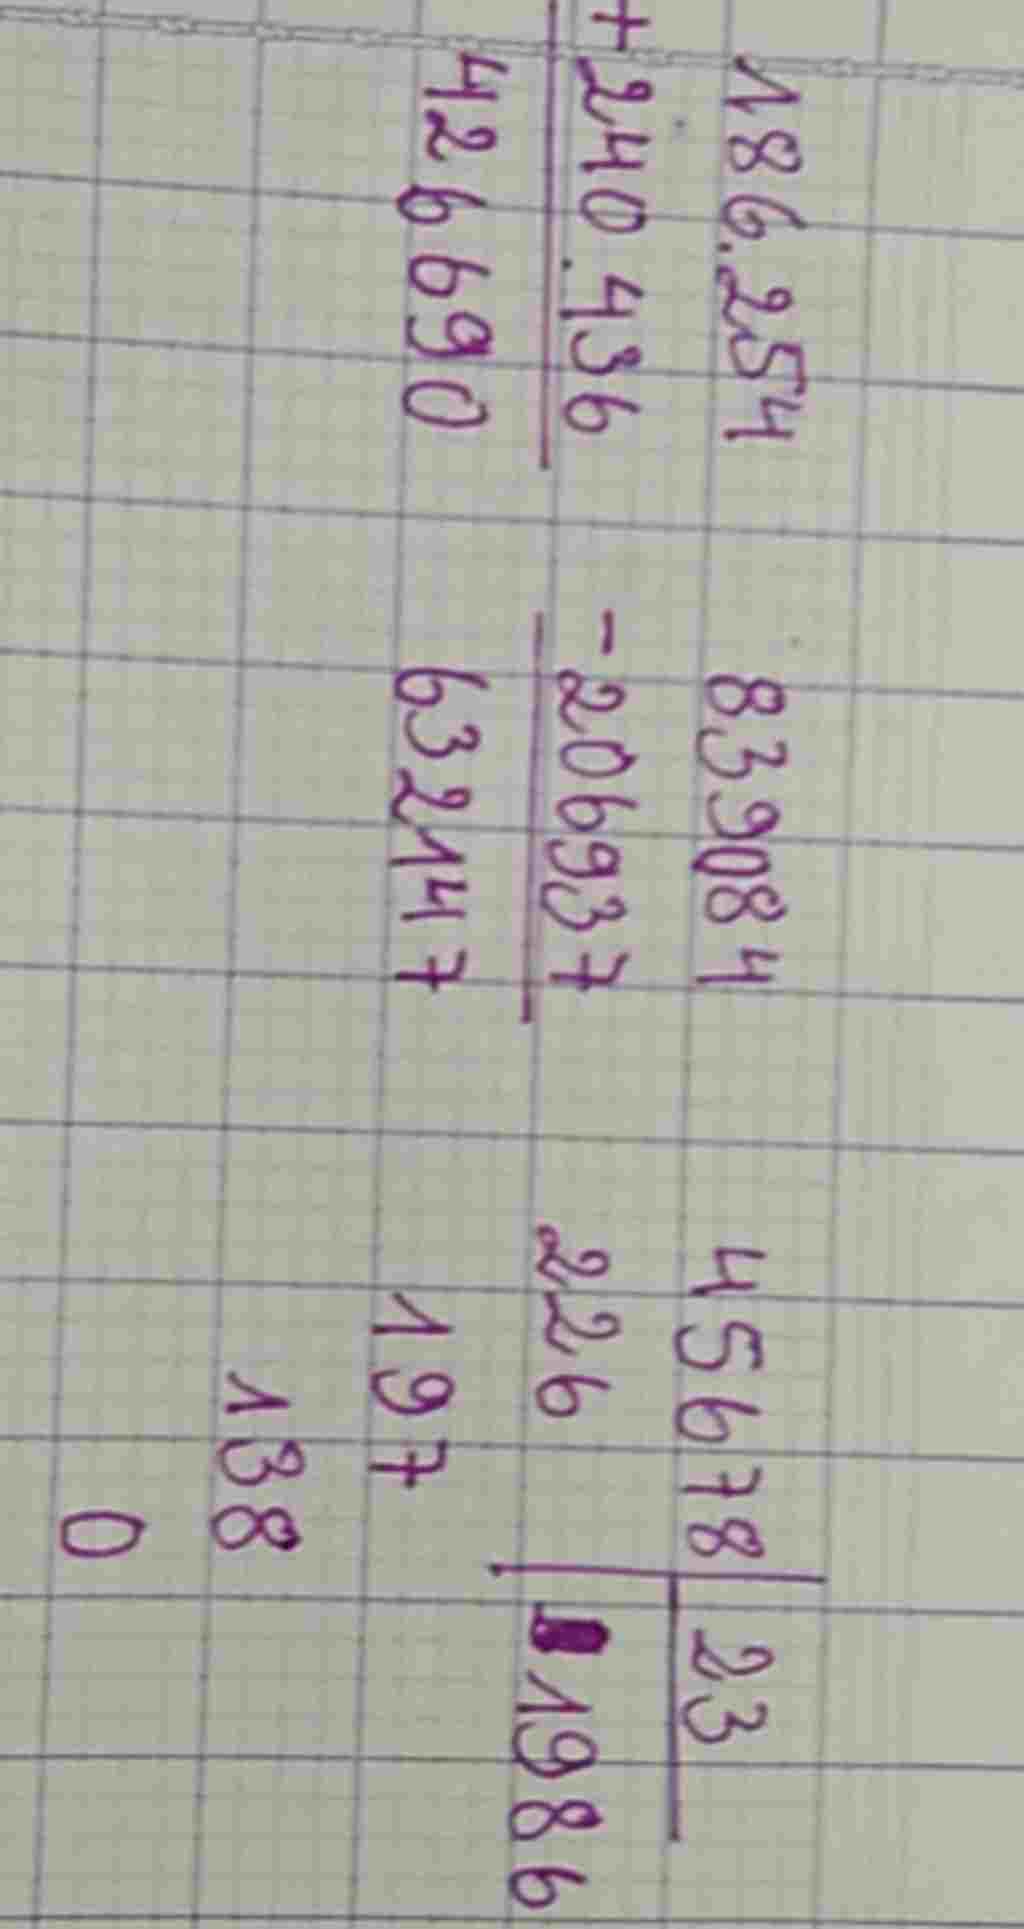 186.254
+ 240.436
426690
839084
- 206937
632147
45678 | 23
226 1986
197
138
0